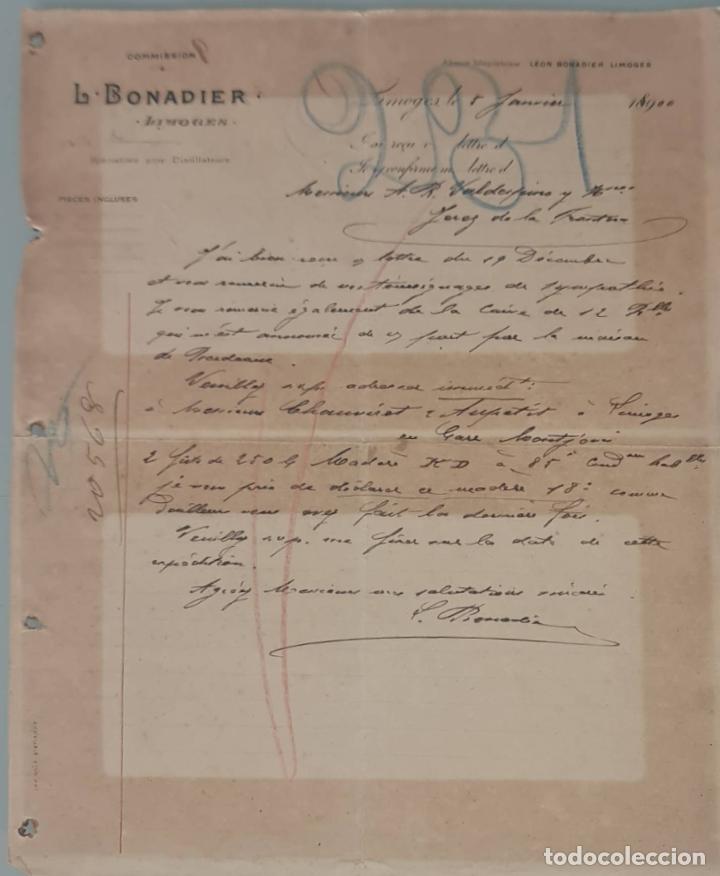 COMMISSION
L. BONADIER
LIMOGES
Spécialités pour Distillateurs
PIÈCES INCLUSES
LÉON BONADIER LIMOGES
Limoges le 5 Janvier 1900
J'ai reçu v lettre d
Je confirme m lettre d
Messieurs A. R. Valdespino y Hnos
Jerez de la Frontera
J'ai bien reçu v/ lettre du 29 Décembre
et vous remercie de vos témoignages de sympathie.
Je vous remercie également de la caisse de 12 Blles
qui m'est annoncée de v/ part par la maison
de Bordeaux.
Veuillez s.v.p. adresser immédt:
à Messieurs Chauviret & à Limoges
en Gare Montjovis
2 fûts de 250 l. Madère KD à 85 hab
je vous prie de déclarer ce madère 18° comme
d'ailleurs vous avez fait la dernière fois.
Veuillez s.v.p. me fixer sur la date de cette
expédition.
Agréez Messieurs mes salutations sincères
L. Bonadier
931
20568
todocoleccion.net